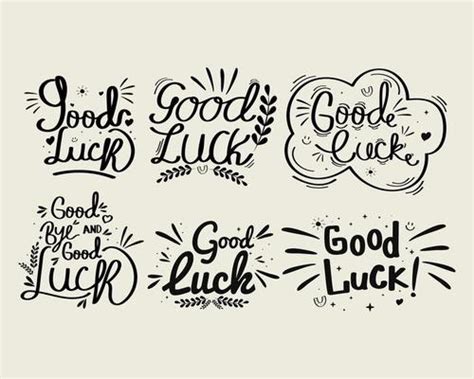 Good
Luck
Good
Luck
Goode
Lucke
Good
Bye AND
Good
Luck
Good
Luck
Good
Luck!